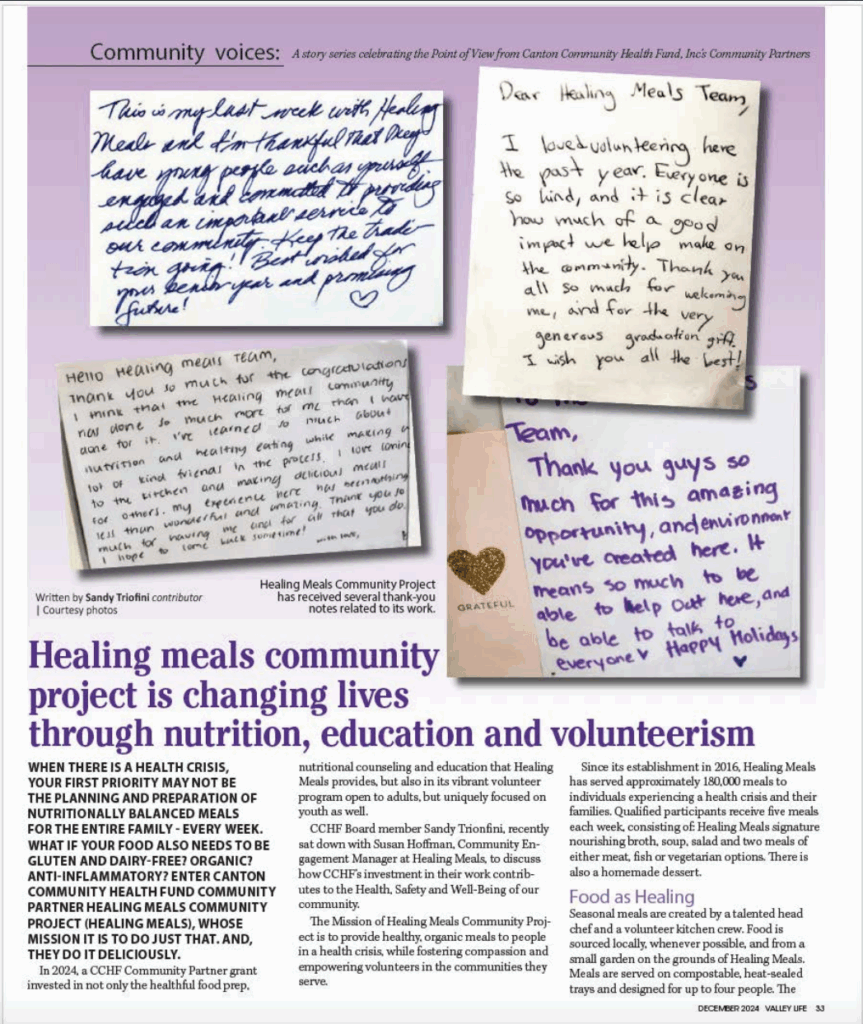 Community voices: A story series celebrating the Point of View from Canton Community Health Fund, Inc's Community Partners
This is my last week with Healing
Meals and I'm thankful that they
have young people such as yourself
engaged and committed to providing
such an important service to
our community. Keep the tradi-
tion going! Best wished for
your senior year and promising
future!
Dear Healing Meals Team,
I loved volunteering here
the past year. Everyone is
so kind, and it is clear
how much of a good
impact we help make on
the community. Thank you
all so much for welcoming
me, and for the very
generous graduation gift.
I wish you all the best!
Hello Healing meals Team,
Thank you so much for the congratulations
I think that the Healing meals community
has done so much more for me than I have
done for it. I've learned so much about
nutrition and healthy eating while making a
lot of kind friends in the process. I love coming
to the kitchen and making delicious meals
for others. My experience here has been nothing
less than wonderful and amazing. Thank you so
much for having me and for all that you do.
I hope to come back sometime! with love,
Team,
Thank you guys so
much for this amazing
opportunity, and environment
you've created here. It
means so much to be
able to help out here, and
be able to talk to
everyone Happy Holidays
GRATEFUL
Written by Sandy Triofini contributor
| Courtesy photos
Healing Meals Community Project
has received several thank-you
notes related to its work.
Healing meals community
project is changing lives
through nutrition, education and volunteerism
WHEN THERE IS A HEALTH CRISIS,
YOUR FIRST PRIORITY MAY NOT BE
THE PLANNING AND PREPARATION OF
NUTRITIONALLY BALANCED MEALS
FOR THE ENTIRE FAMILY - EVERY WEEK.
WHAT IF YOUR FOOD ALSO NEEDS TO BE
GLUTEN AND DAIRY-FREE? ORGANIC?
ANTI-INFLAMMATORY? ENTER CANTON
COMMUNITY HEALTH FUND COMMUNITY
PARTNER HEALING MEALS COMMUNITY
PROJECT (HEALING MEALS), WHOSE
MISSION IT IS TO DO JUST THAT. AND,
THEY DO IT DELICIOUSLY.
In 2024, a CCHF Community Partner grant
invested in not only the healthful food prep,
nutritional counseling and education that Healing
Meals provides, but also in its vibrant volunteer
program open to adults, but uniquely focused on
youth as well.
CCHF Board member Sandy Trionfini, recently
sat down with Susan Hoffman, Community En-
gagement Manager at Healing Meals, to discuss
how CCHF's investment in their work contrib-
utes to the Health, Safety and Well-Being of our
community.
The Mission of Healing Meals Community Proj-
ect is to provide healthy, organic meals to people
in a health crisis, while fostering compassion and
empowering volunteers in the communities they
serve.
Since its establishment in 2016, Healing Meals
has served approximately 180,000 meals to
individuals experiencing a health crisis and their
families. Qualified participants receive five meals
each week, consisting of: Healing Meals signature
nourishing broth, soup, salad and two meals of
either meat, fish or vegetarian options. There is
also a homemade dessert.
Food as Healing
Seasonal meals are created by a talented head
chef and a volunteer kitchen crew. Food is
sourced locally, whenever possible, and from a
small garden on the grounds of Healing Meals.
Meals are served on compostable, heat-sealed
trays and designed for up to four people. The
DECEMBER 2024 VALLEY LIFE 33